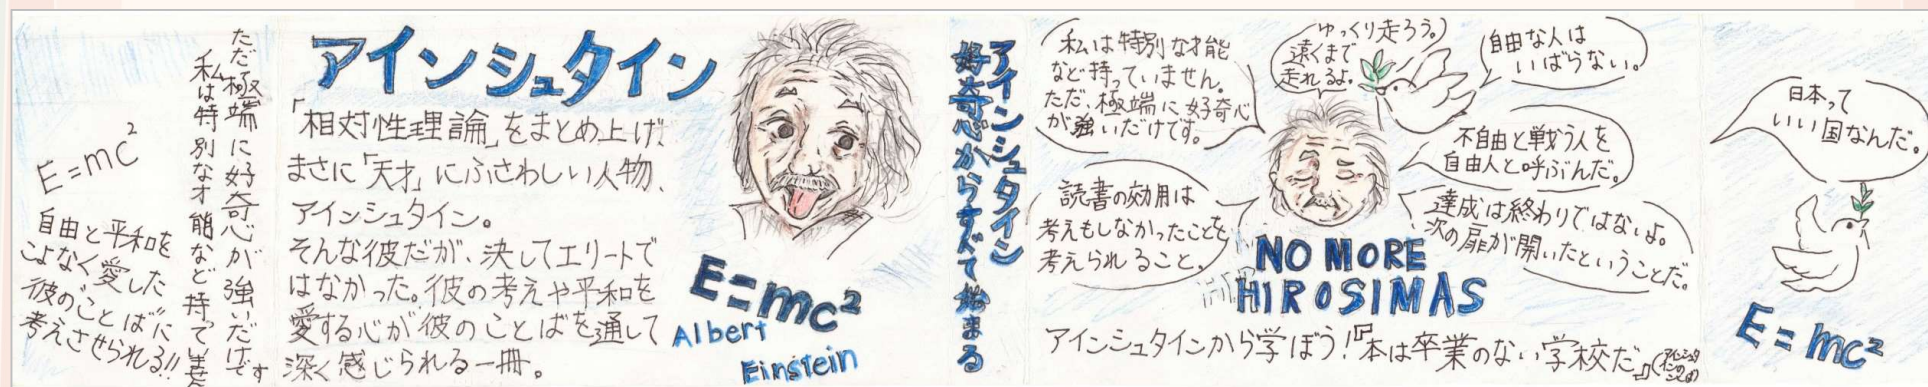 E=mc²
自由と平和を
こよなく愛した
彼のことばに
考えさせられる!!
私は特別な才能など持って
ただ極端に好奇心が強いだけです
アインシュタイン
「相対性理論」をまとめ上げ、
まさに「天才」にふさわしい人物、
アインシュタイン。
そんな彼だが、決してエリートで
はなかった。彼の考えや平和を
愛する心が彼のことばを通して
深く感じられる一冊。
E=mc²
Albert
Einstein
アインシュタイン
好奇心からすべて始まる
私は特別な才能
など持っていません。
ただ、極端に好奇心
が強いだけです。
ゆっくり走ろう。
遠くまで
走れるよ。
自由な人は
いばらない。
不自由と戦う人を
自由人と呼ぶんだ。
読書の効用は
考えもしなかったことを
考えられること。
達成は終わりではないよ。
次の扉が開いたということだ。
NO MORE
HIROSIMAS
アインシュタインから学ぼう!『本は卒業のない学校だ。』
日本って
いい国なんだ。
E=mc²